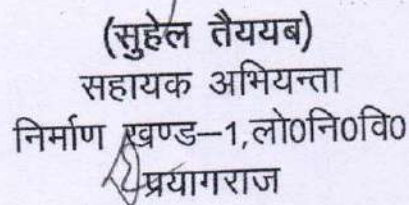 (सुहेल तैययब)
सहायक अभियन्ता
निर्माण खण्ड–1,लो0नि0वि0
प्रयागराज